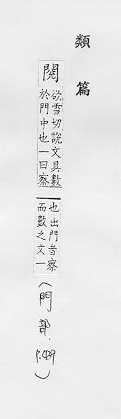 類篇
閱
欲雪切說文具數
於門中也一曰察
也出門者察
而數之文一
(門部.